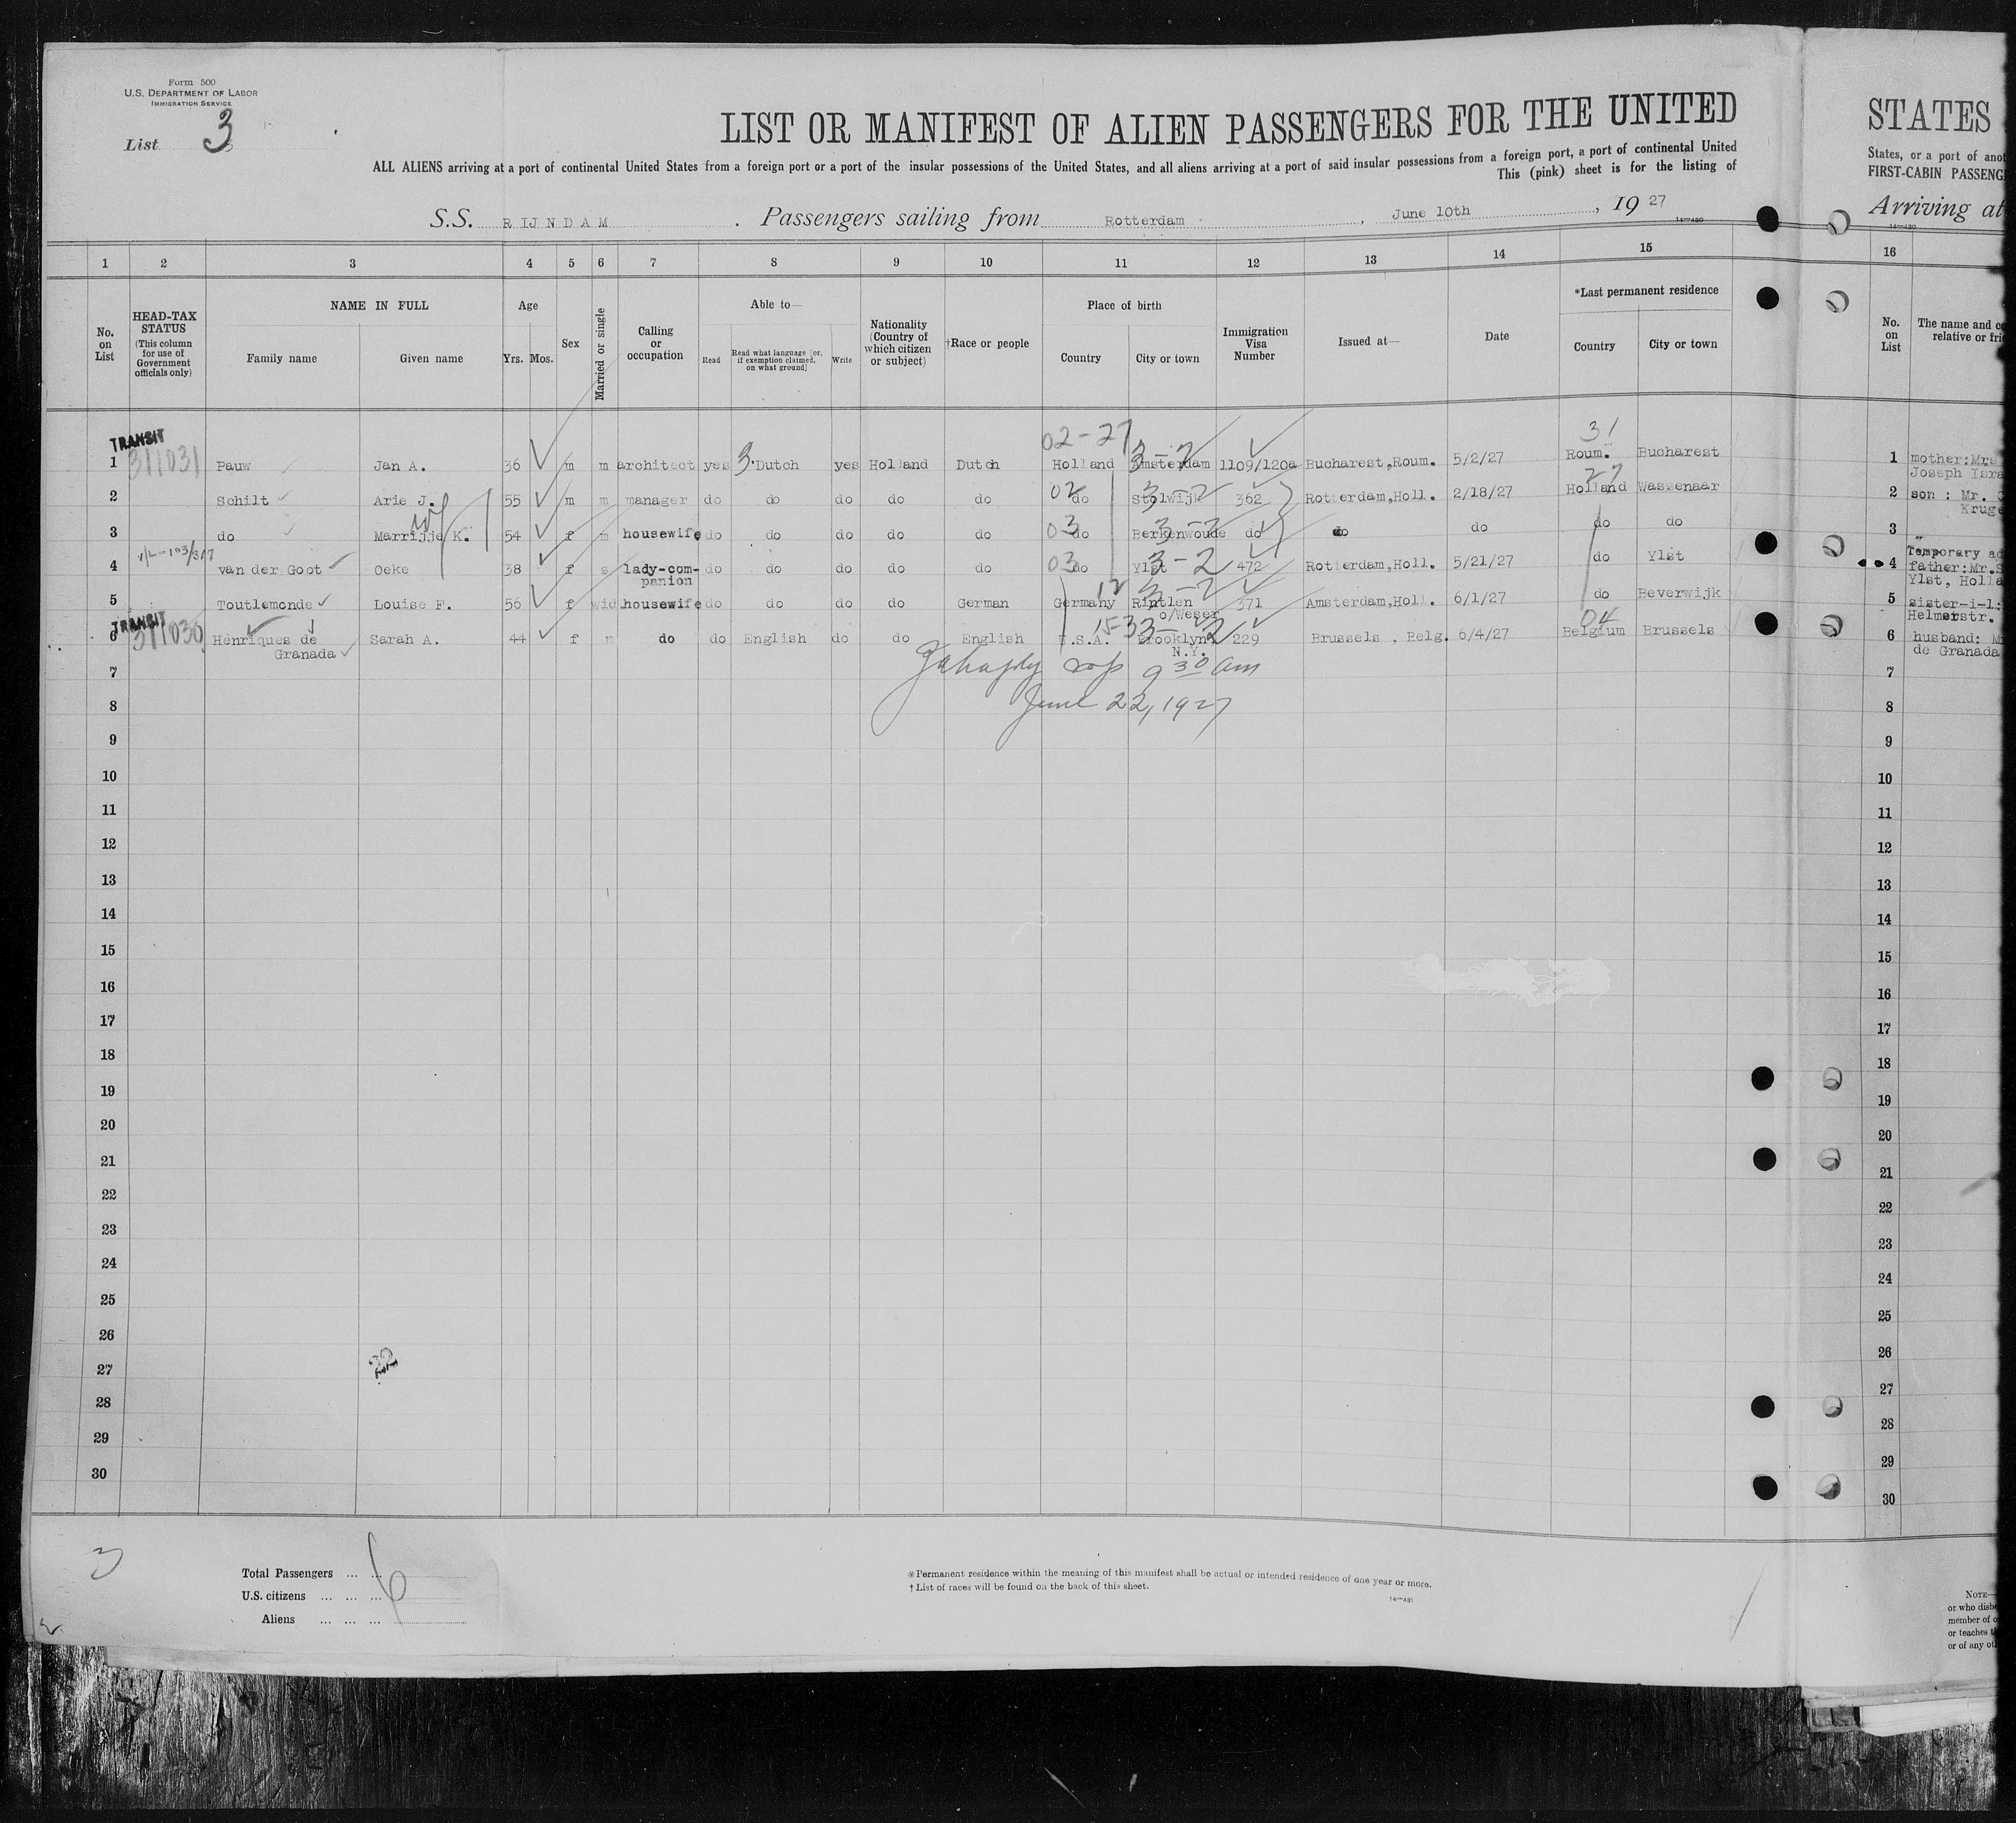 Form 500
U.S. DEPARTMENT OF LABOR
IMMIGRATION SERVICE
List 3
LIST OR MANIFEST OF ALIEN PASSENGERS FOR THE UNITED
STATES
ALL ALIENS arriving at a port of continental United States from a foreign port or a port of the insular possessions of the United States, and all aliens arriving at a port of said insular possessions from a foreign port, a port of continental United
States, or a port of anot
This (pink) sheet is for the listing of
FIRST-CABIN PASSENG
S.S. RIJNDAM. Passengers sailing from Rotterdam, June 10th, 1927
14-480
Arriving at
14-480
1 2 3 4 5 6 7 8 9 10 11 12 13 14 15 16
No. on List
HEAD-TAX STATUS (This column for use of Government officials only)
NAME IN FULL
Family name Given name
Age
Yrs. Mos.
Sex
Married or single
Calling or occupation
Able to—
Read
Read what language [or, if exemption claimed, on what ground]
Write
Nationality (Country of which citizen or subject)
†Race or people
Place of birth
Country City or town
Immigration Visa Number
Issued at—
Date
*Last permanent residence
Country City or town
No. on List
The name and co
relative or frie
02-27 31
TRANSIT
311031
1 Pauw Jan A. 36 m m architect yes 3. Dutch yes Holland Dutch Holland Amsterdam 3-2 1109/120a Bucharest,Roum. 5/2/27 Roum. Bucharest 1 mother:Mrs
Joseph Isra
27
2 Schilt Arie J. 55 m m manager do do do do do 02 do Stolwijk 3-2 362 Rotterdam,Holl. 2/18/27 Holland Wassenaar 2 son : Mr.
Kruge
wf
3 do Marrijje K. 54 f m housewife do do do do do 03 do Berkenwoude 3-2 do do do do do 3 "
Temporary ad
4 van der Goot Oeke 38 f s lady-com-panion do do do do do 03 do Ylst 3-2 472 Rotterdam,Holl. 5/21/27 do Ylst 4 father:Mr.S
Ylst, Holla
12
5 Toutlemonde Louise F. 56 f wid housewife do do do do German Germany Rintlen o/Weser 3-2 371 Amsterdam,Holl. 6/1/27 do Beverwijk 5 sister-i-l:
Helmerstr.
TRANSIT
311030
15-33 04
6 Henriques de Granada Sarah A. 44 f m do do English do do English U.S.A. Brooklyn N.Y. 3-2 229 Brussels , Belg. 6/4/27 Belgium Brussels 6 husband: M
de Granada
9 30 am
June 22, 1927
7 7
8 8
9 9
10 10
11 11
12 12
13 13
14 14
15 15
16 16
17 17
18 18
19 19
20 20
21 21
22 22
23 23
24 24
25 25
26 26
27 27
28 28
29 29
30 30
3
Total Passengers ... ... 6
U.S. citizens ... ... ...
Aliens ... ... ...
*Permanent residence within the meaning of this manifest shall be actual or intended residence of one year or more.
†List of races will be found on the back of this sheet.
14-481
NOTE—
or who dise
member of o
or teaches t
or of any ot